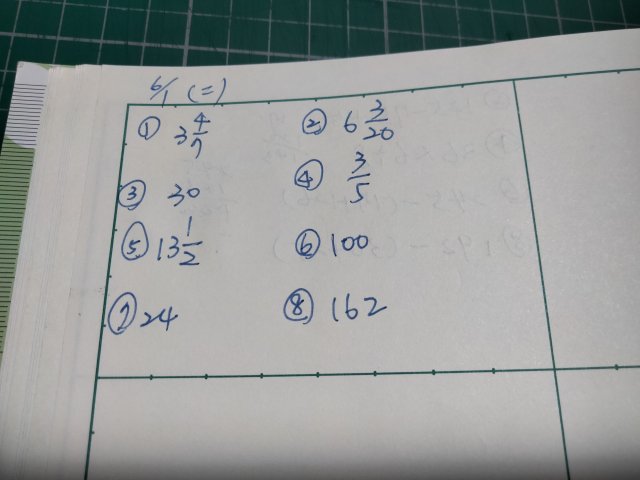 6/1 (二)
① 3 4/7 ② 6 3/20
③ 30 ④ 3/5
⑤ 13 1/2 ⑥ 100
⑦ 24 ⑧ 162